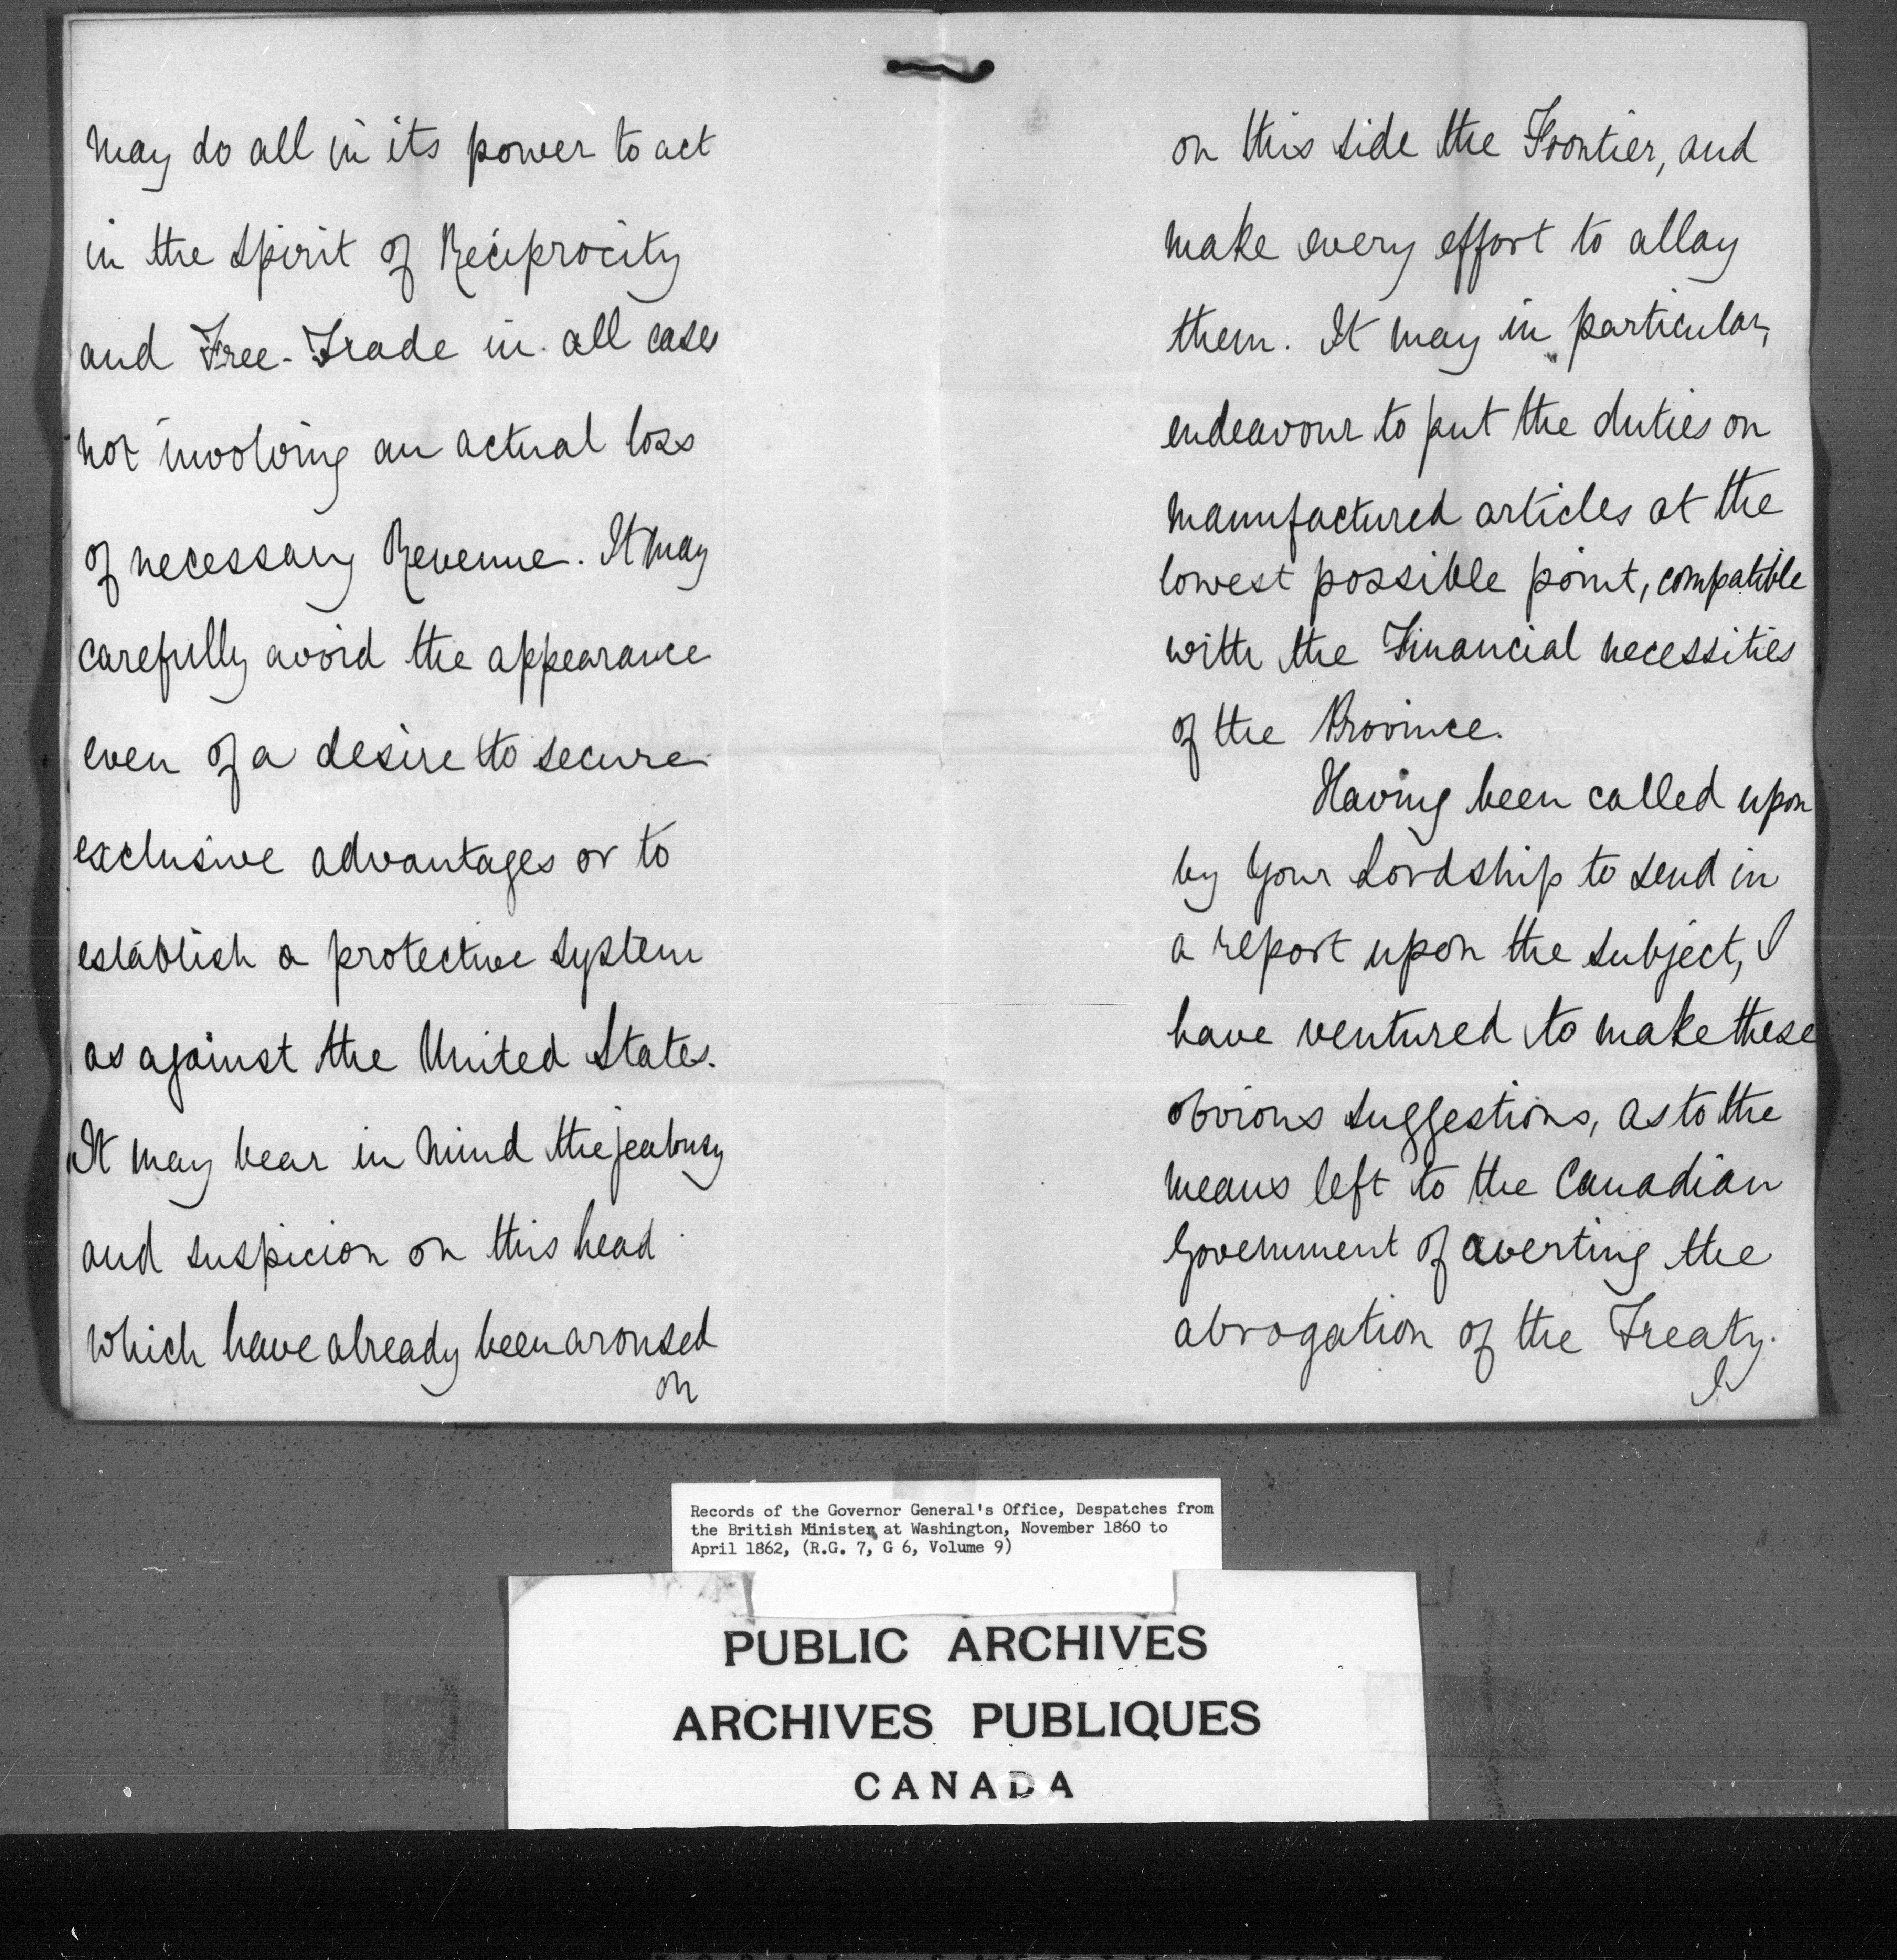 may do all in its power to act
in the spirit of Reciprocity
and Free-Trade in all cases
not involving an actual loss
of necessary Revenue. It may
carefully avoid the appearance
even of a desire to secure
exclusive advantages or to
establish a protective system
as against the United States.
It may bear in mind the jealousy
and suspicion on this head
which have already been aroused
on
on this side the Frontier, and
make every effort to allay
them. It may in particular,
endeavour to put the duties on
manufactured articles at the
lowest possible point, compatible
with the Financial necessities
of the Province.
Having been called upon
by Your Lordship to send in
a report upon the subject, I
have ventured to make these
obvious suggestions, as to the
means left to the Canadian
Government of averting the
abrogation of the Treaty.
I
Records of the Governor General's Office, Despatches from
the British Minister at Washington, November 1860 to
April 1862, (R.G. 7, G 6, Volume 9)
PUBLIC ARCHIVES
ARCHIVES PUBLIQUES
CANADA